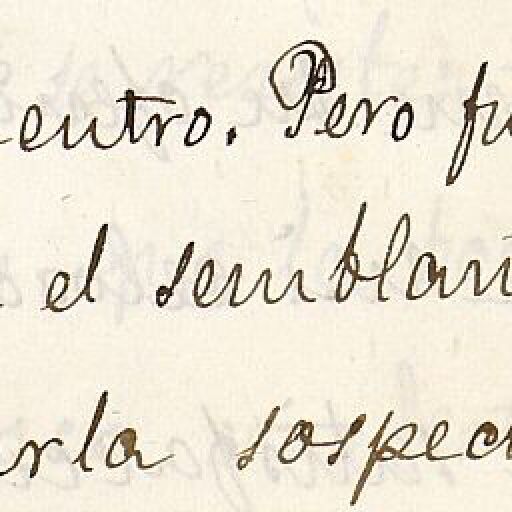 entro. Pero fu
el semblan
arla sospec